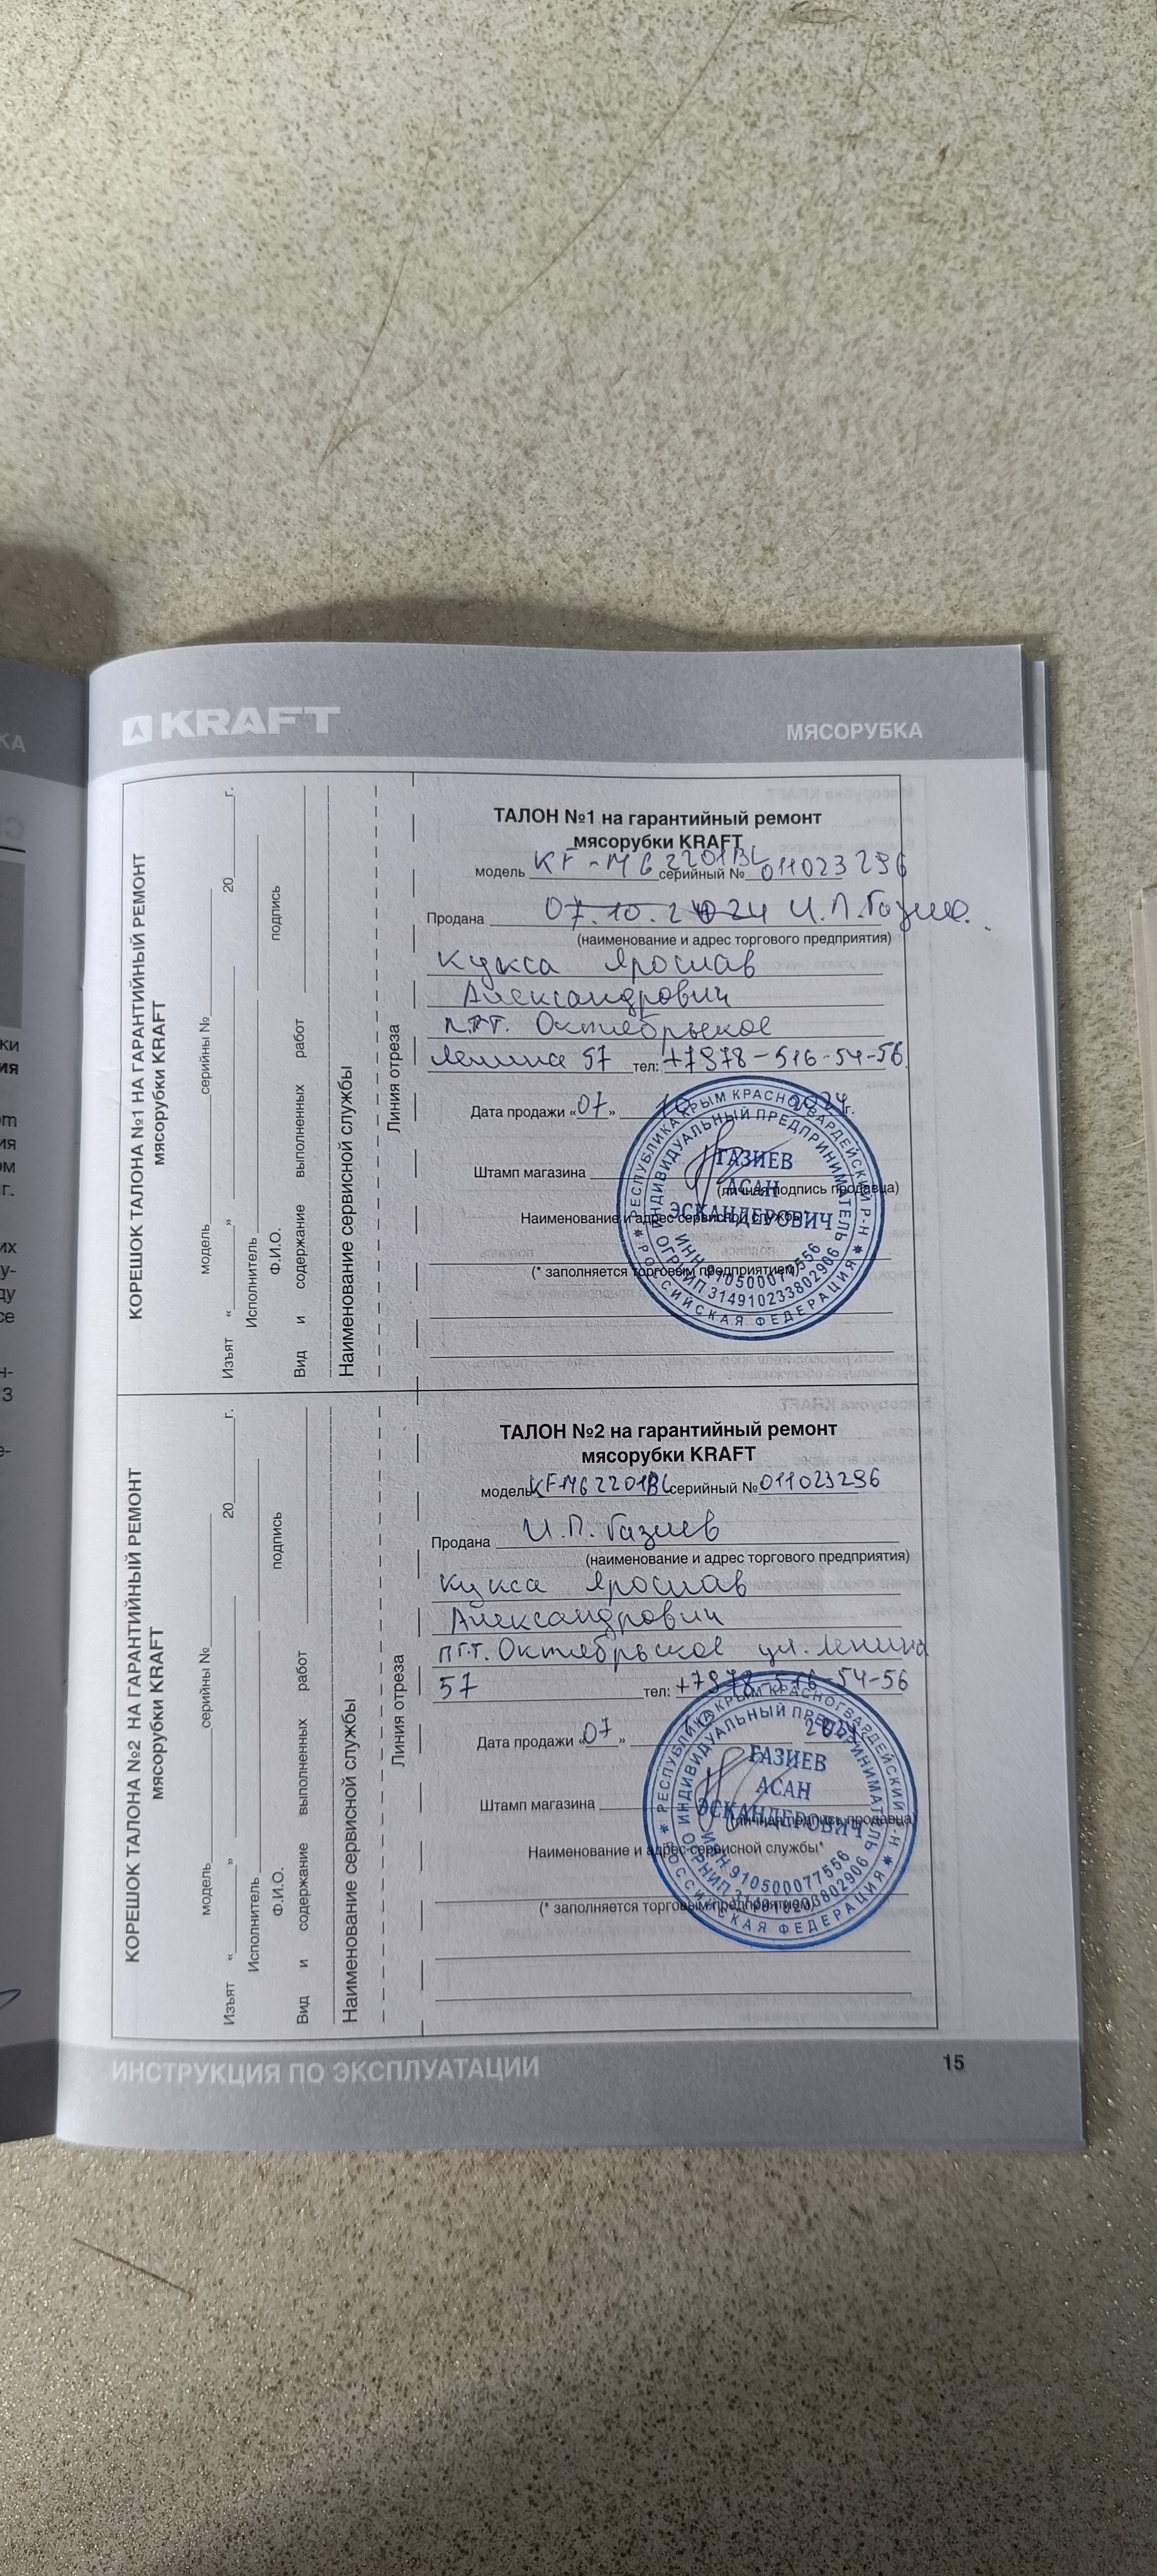 КА
KRAFT
МЯСОРУБКА
КОРЕШОК ТАЛОНА №1 НА ГАРАНТИЙНЫЙ РЕМОНТ
мясорубки KRAFT
модель серийны №
Изъят « » 20 г.
Исполнитель
Ф.И.О. подпись
Вид и содержание выполненных работ
Наименование сервисной службы
Линия отреза
ТАЛОН №1 на гарантийный ремонт
мясорубки KRAFT
модель KF-MG2201BL серийный № 011023296
Продана 07.10.2024 И.П.Газиев.
(наименование и адрес торгового предприятия)
Кукса Ярослав
Александрович
пгт. Октябрьское
Ленина 57 тел: +7978-516-54-56
Дата продажи «07» 10 2024 г.
Штамп магазина
(личная подпись продавца)
Наименование и адрес сервисной службы*
(* заполняется торговым предприятием)
РЕСПУБЛИКА КРЫМ КРАСНОГВАРДЕЙСКИЙ Р-Н
РОССИЙСКАЯ ФЕДЕРАЦИЯ
ИНДИВИДУАЛЬНЫЙ ПРЕДПРИНИМАТЕЛЬ
ГАЗИЕВ
АСАН
ЭСКАНДЕРОВИЧ
ИНН 910500077556
ОГРНИП 314910233802906
КОРЕШОК ТАЛОНА №2 НА ГАРАНТИЙНЫЙ РЕМОНТ
мясорубки KRAFT
модель серийны №
Изъят « » 20 г.
Исполнитель
Ф.И.О. подпись
Вид и содержание выполненных работ
Наименование сервисной службы
Линия отреза
ТАЛОН №2 на гарантийный ремонт
мясорубки KRAFT
модель KF-MG2201BL серийный № 011023296
Продана И.П. Газиев
(наименование и адрес торгового предприятия)
Кукса Ярослав
Александрович
пгт. Октябрьское ул. Ленина
57 тел: +7978-516-54-56
Дата продажи «07» 10 2024
Штамп магазина
(личная подпись продавца)
Наименование и адрес сервисной службы*
(* заполняется торговым предприятием)
РЕСПУБЛИКА КРЫМ КРАСНОГВАРДЕЙСКИЙ Р-Н
РОССИЙСКАЯ ФЕДЕРАЦИЯ
ИНДИВИДУАЛЬНЫЙ ПРЕДПРИНИМАТЕЛЬ
ГАЗИЕВ
АСАН
ЭСКАНДЕРОВИЧ
ИНН 910500077556
ОГРНИП 314910233802906
ИНСТРУКЦИЯ ПО ЭКСПЛУАТАЦИИ
15